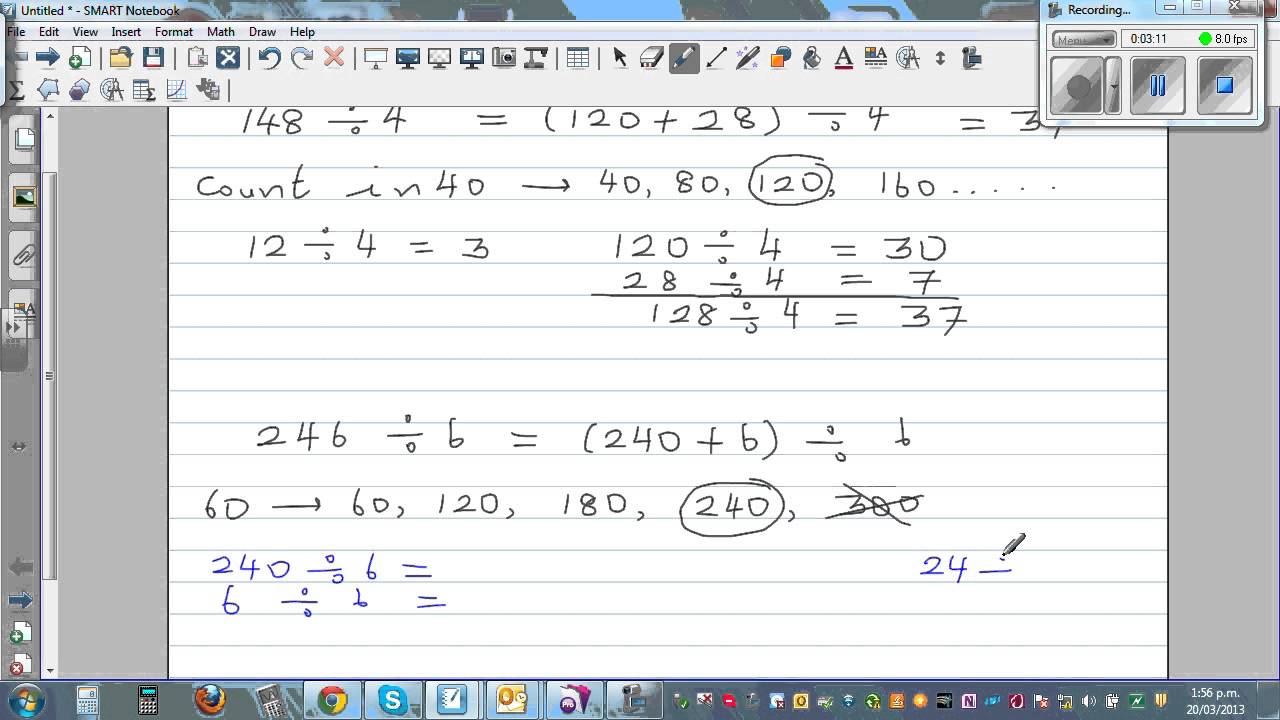 Untitled * - SMART Notebook
Recording...
File Edit View Insert Format Math Draw Help
Menu 0:03:11 8.0 fps
148 ÷ 4 = (120 + 28) ÷ 4 = 37
Count in 40 → 40, 80, 120, 160.....
12 ÷ 4 = 3 120 ÷ 4 = 30
28 ÷ 4 = 7
128 ÷ 4 = 37
246 ÷ 6 = (240 + 6) ÷ 6
60 → 60, 120, 180, 240, 300
240 ÷ 6 = 24 ÷
6 ÷ 6 =
1:56 p.m.
20/03/2013